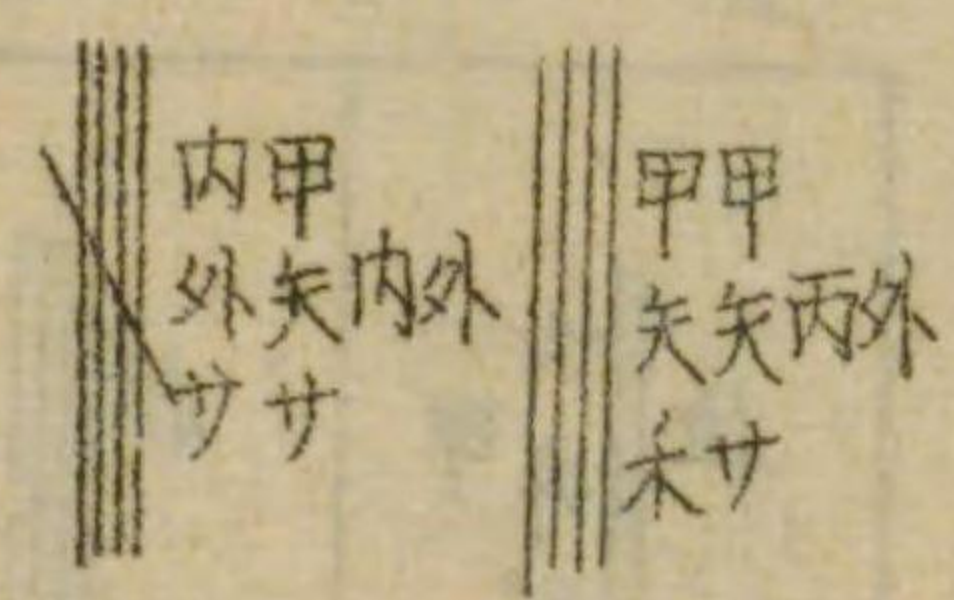 内甲
外矢内外
サササ
甲甲
矢矢丙外
禾サ